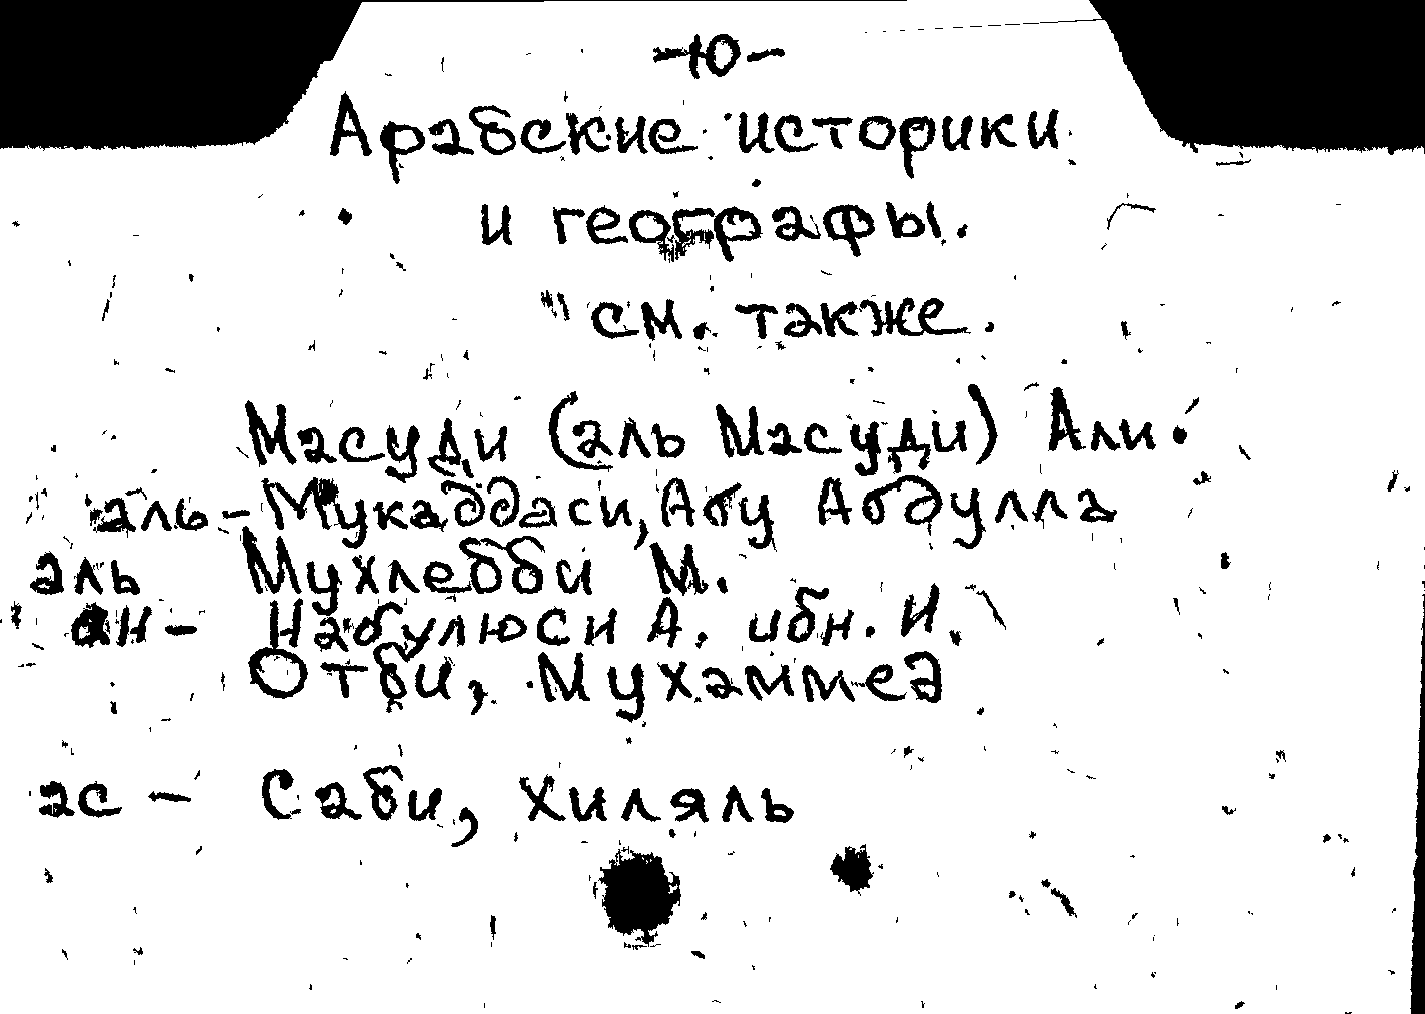 -10-
Арабские историки
и географы.
" см. также.
Масуди (аль Масуди) Али.
аль-Мукаддаси, Абу Абдулла
аль Мухлебби М.
ан- Набулюси А. ибн. И.
Отби, Мухаммед
ас - Саби, Хиляль